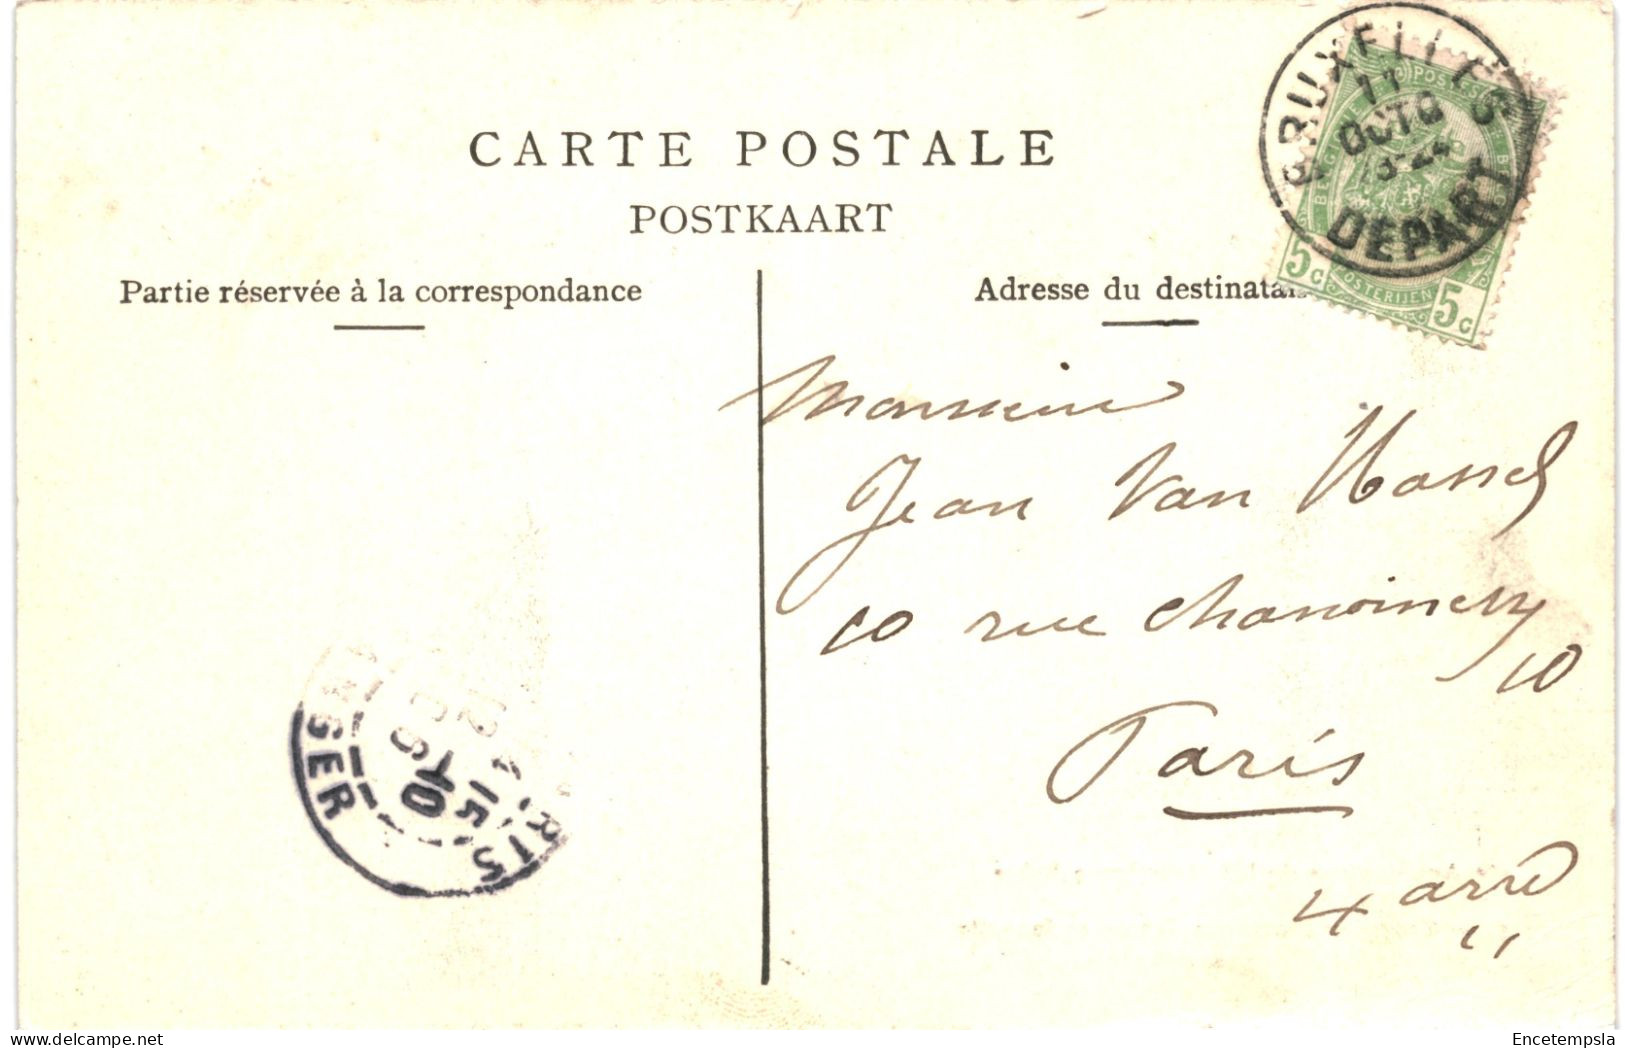 CARTE POSTALE
POSTKAART
Partie réservée à la correspondance
Adresse du destinatai
BRUXELLES
11
OCTO
DEPART
POSTES
BELGIQUE
POSTERIJEN
5c
5c
Monsieur
Jean Van Hassel
10 rue Chanoinesse
10
Paris
4 arrd
12
15
10
Encetempsla